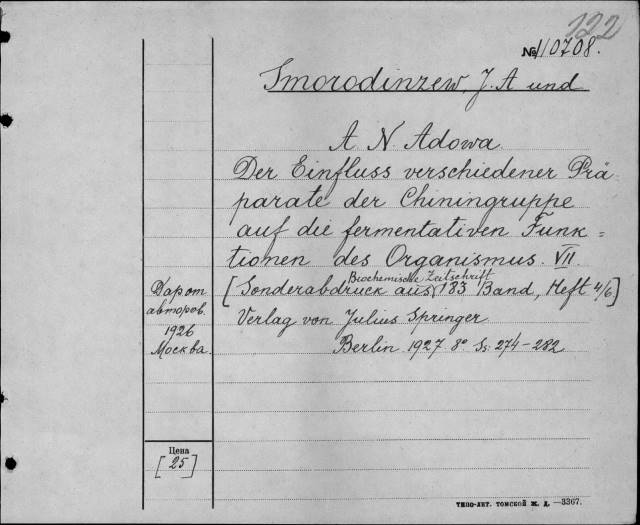 122
№ 110708.
Smorodinzew, J. A und
A N. Adowa.
Der Einfluss verschiedener Prä
parate der Chiningruppe
auf die fermentativen Funk =
tionen des Organismus. VII.
Biochemische Zeitschrift
[Sonderabdruck aus 183 Band, Heft 4/6]
Verlag von Julius Springer
Berlin 1927 8° Ss. 274-282
Дар от
авторов.
1926
Москва.
Цена
[25]
ТИПО-ЛИТ. ТОМСКОЙ Ж. Д. —3367.